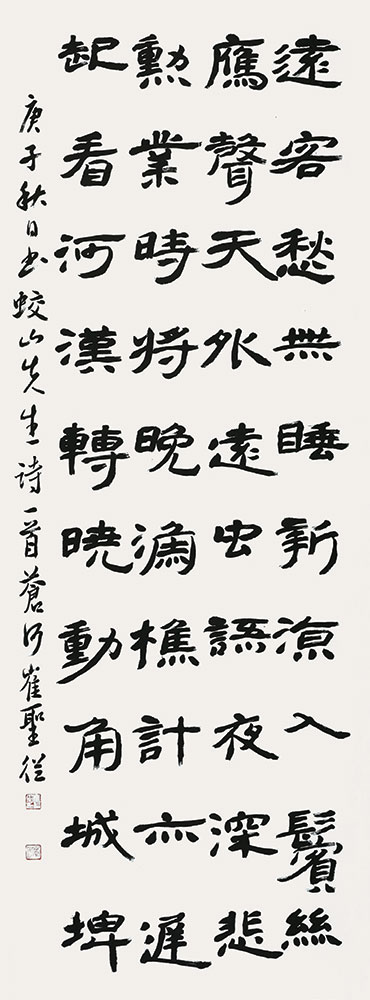 遠客愁無睡新涼入鬢絲
鴈聲天外遠虫語夜深悲
勳業時將晚漁樵計亦遲
起看河漢轉曉動角城埤
庚子秋日书蛟山先生詩一首蒼河崔聖從